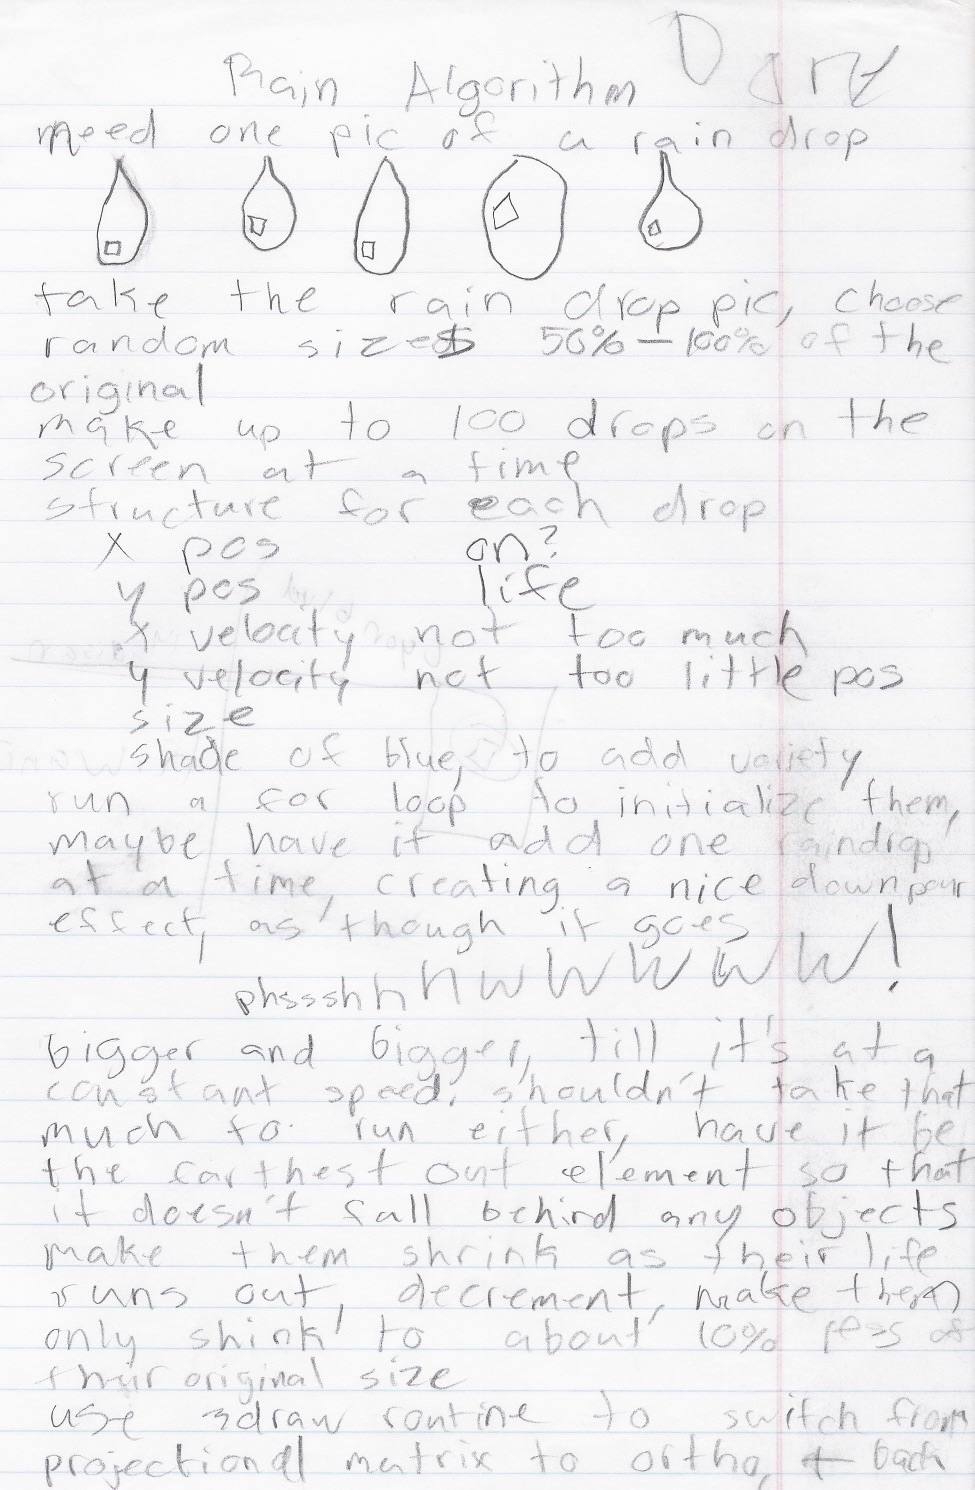 Rain Algorithm
need one pic of a rain drop
take the rain drop pic, choose
random sizes 50% - 100% of the
original
make up to 100 drops on the
screen at a time
structure for each drop
x pos on?
y pos life
x velocity not too much
y velocity not too little pos
size
shade of blue, to add variety
run a for loop to initialize them,
maybe have it add one raindrop
at a time, creating a nice downpour
effect, as though it goes
phssshhhhwWWWWW!
bigger and bigger, till it's at a
constant speed. shouldn't take that
much to run either, have it be
the farthest out element so that
it doesn't fall behind any objects
make them shrink as their life
runs out, decrement, make them
only shink to about 10% less of
their original size
use 3draw routine to switch from
projectional matrix to ortho, + back